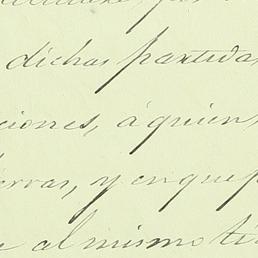 dichas partidas
ciones, á quien
erras, y en que p
e al mismo ti